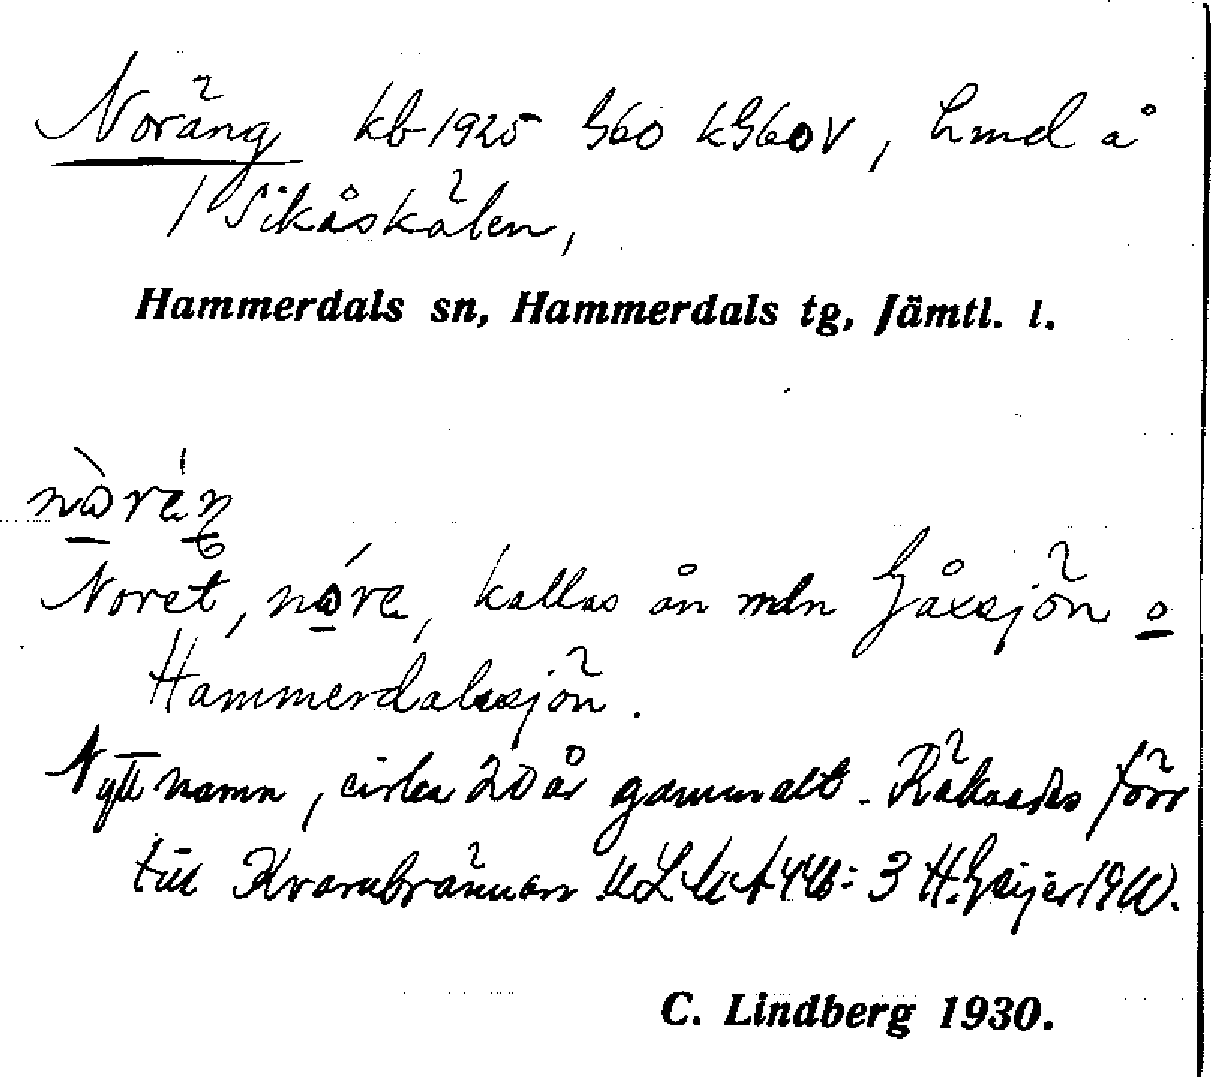 Noräng kb 1925 G60 kG60V, hmd å
/ Sikåskälen,
Hammerdals sn, Hammerdals tg, Jämtl. l.
Noret, kallas ån mln Gåxsjön o
Hammerdalssjön.
Nytt namn, cirka 20 år gammalt. Räknades förr
till Kvarnbrännan ULMA 446:3 H. Geijer
C. Lindberg 1930.